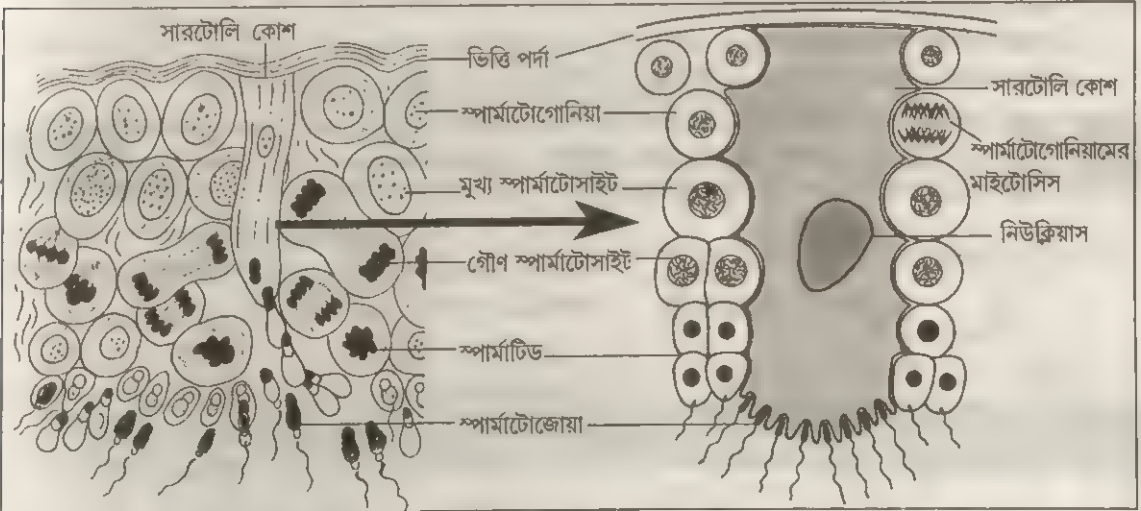 সারটোলি কোশ
ভিত্তি পর্দা
স্পার্মাটোগোনিয়া
মুখ্য স্পার্মাটোসাইট
গৌণ স্পার্মাটোসাইট
স্পার্মাটিড
স্পার্মাটোজোয়া
সারটোলি কোশ
স্পার্মাটোগোনিয়ামের
মাইটোসিস
নিউক্লিয়াস